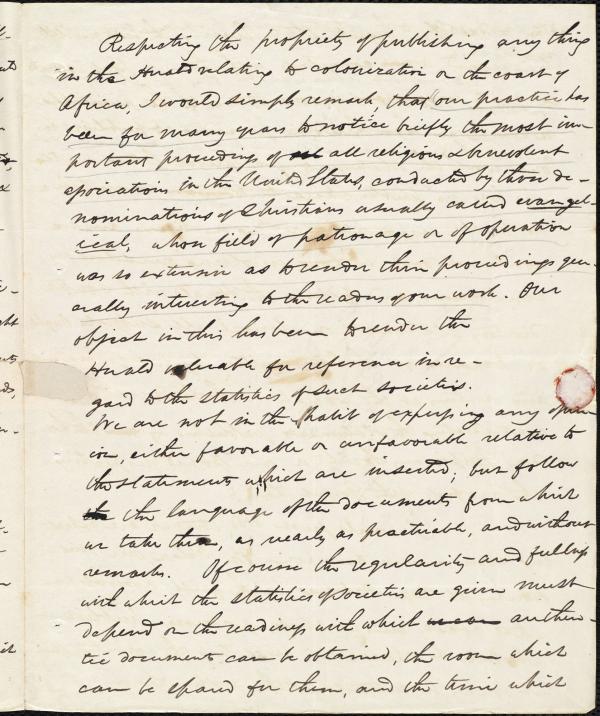 Respecting the propriety of publishing any thing
in the Herald relating to colonization on the coast of
Africa, I would simply remark, that our practice has
been for many years to notice briefly the most im-
portant proceedings of all religious & benevolent
associations in the United States, conducted by those de-
nominations of Christians usually called evangel-
ical, whose field of patronage or of operation
was so extensive as to render their proceedings gen-
erally interesting to the readers of our work. Our
object in this has been to render the
Herald valuable for reference in re-
gard to the statistics of such societies.
We are not in the habit of expressing any opin-
ion, either favorable or unfavorable relative to
the statements which are inserted; but follow
the language of the documents from which
we take them, as nearly as practicable, and without
remarks. Of course the regularity and fullness
with which the statistics of societies are given must
depend on the readiness with which authen-
tic documents can be obtained, the room which
can be spared for them, and the time which